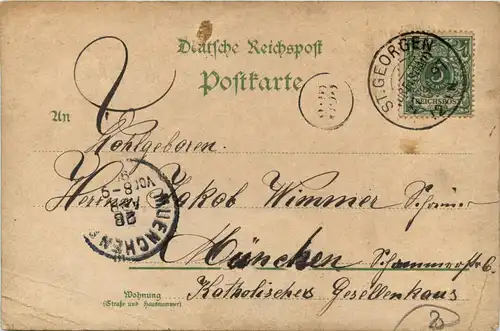 Deutsche Reichspost
Postkarte
ST. GEORGEN
REICHSPOST
An
Wohlgeboren.
Herrn Jakob Wimmer
MUENCHEN
28
Vor 8-9
München Schommerstr 6
Katholisches Gesellenhaus
Wohnung
(Straße und Hausnummer)